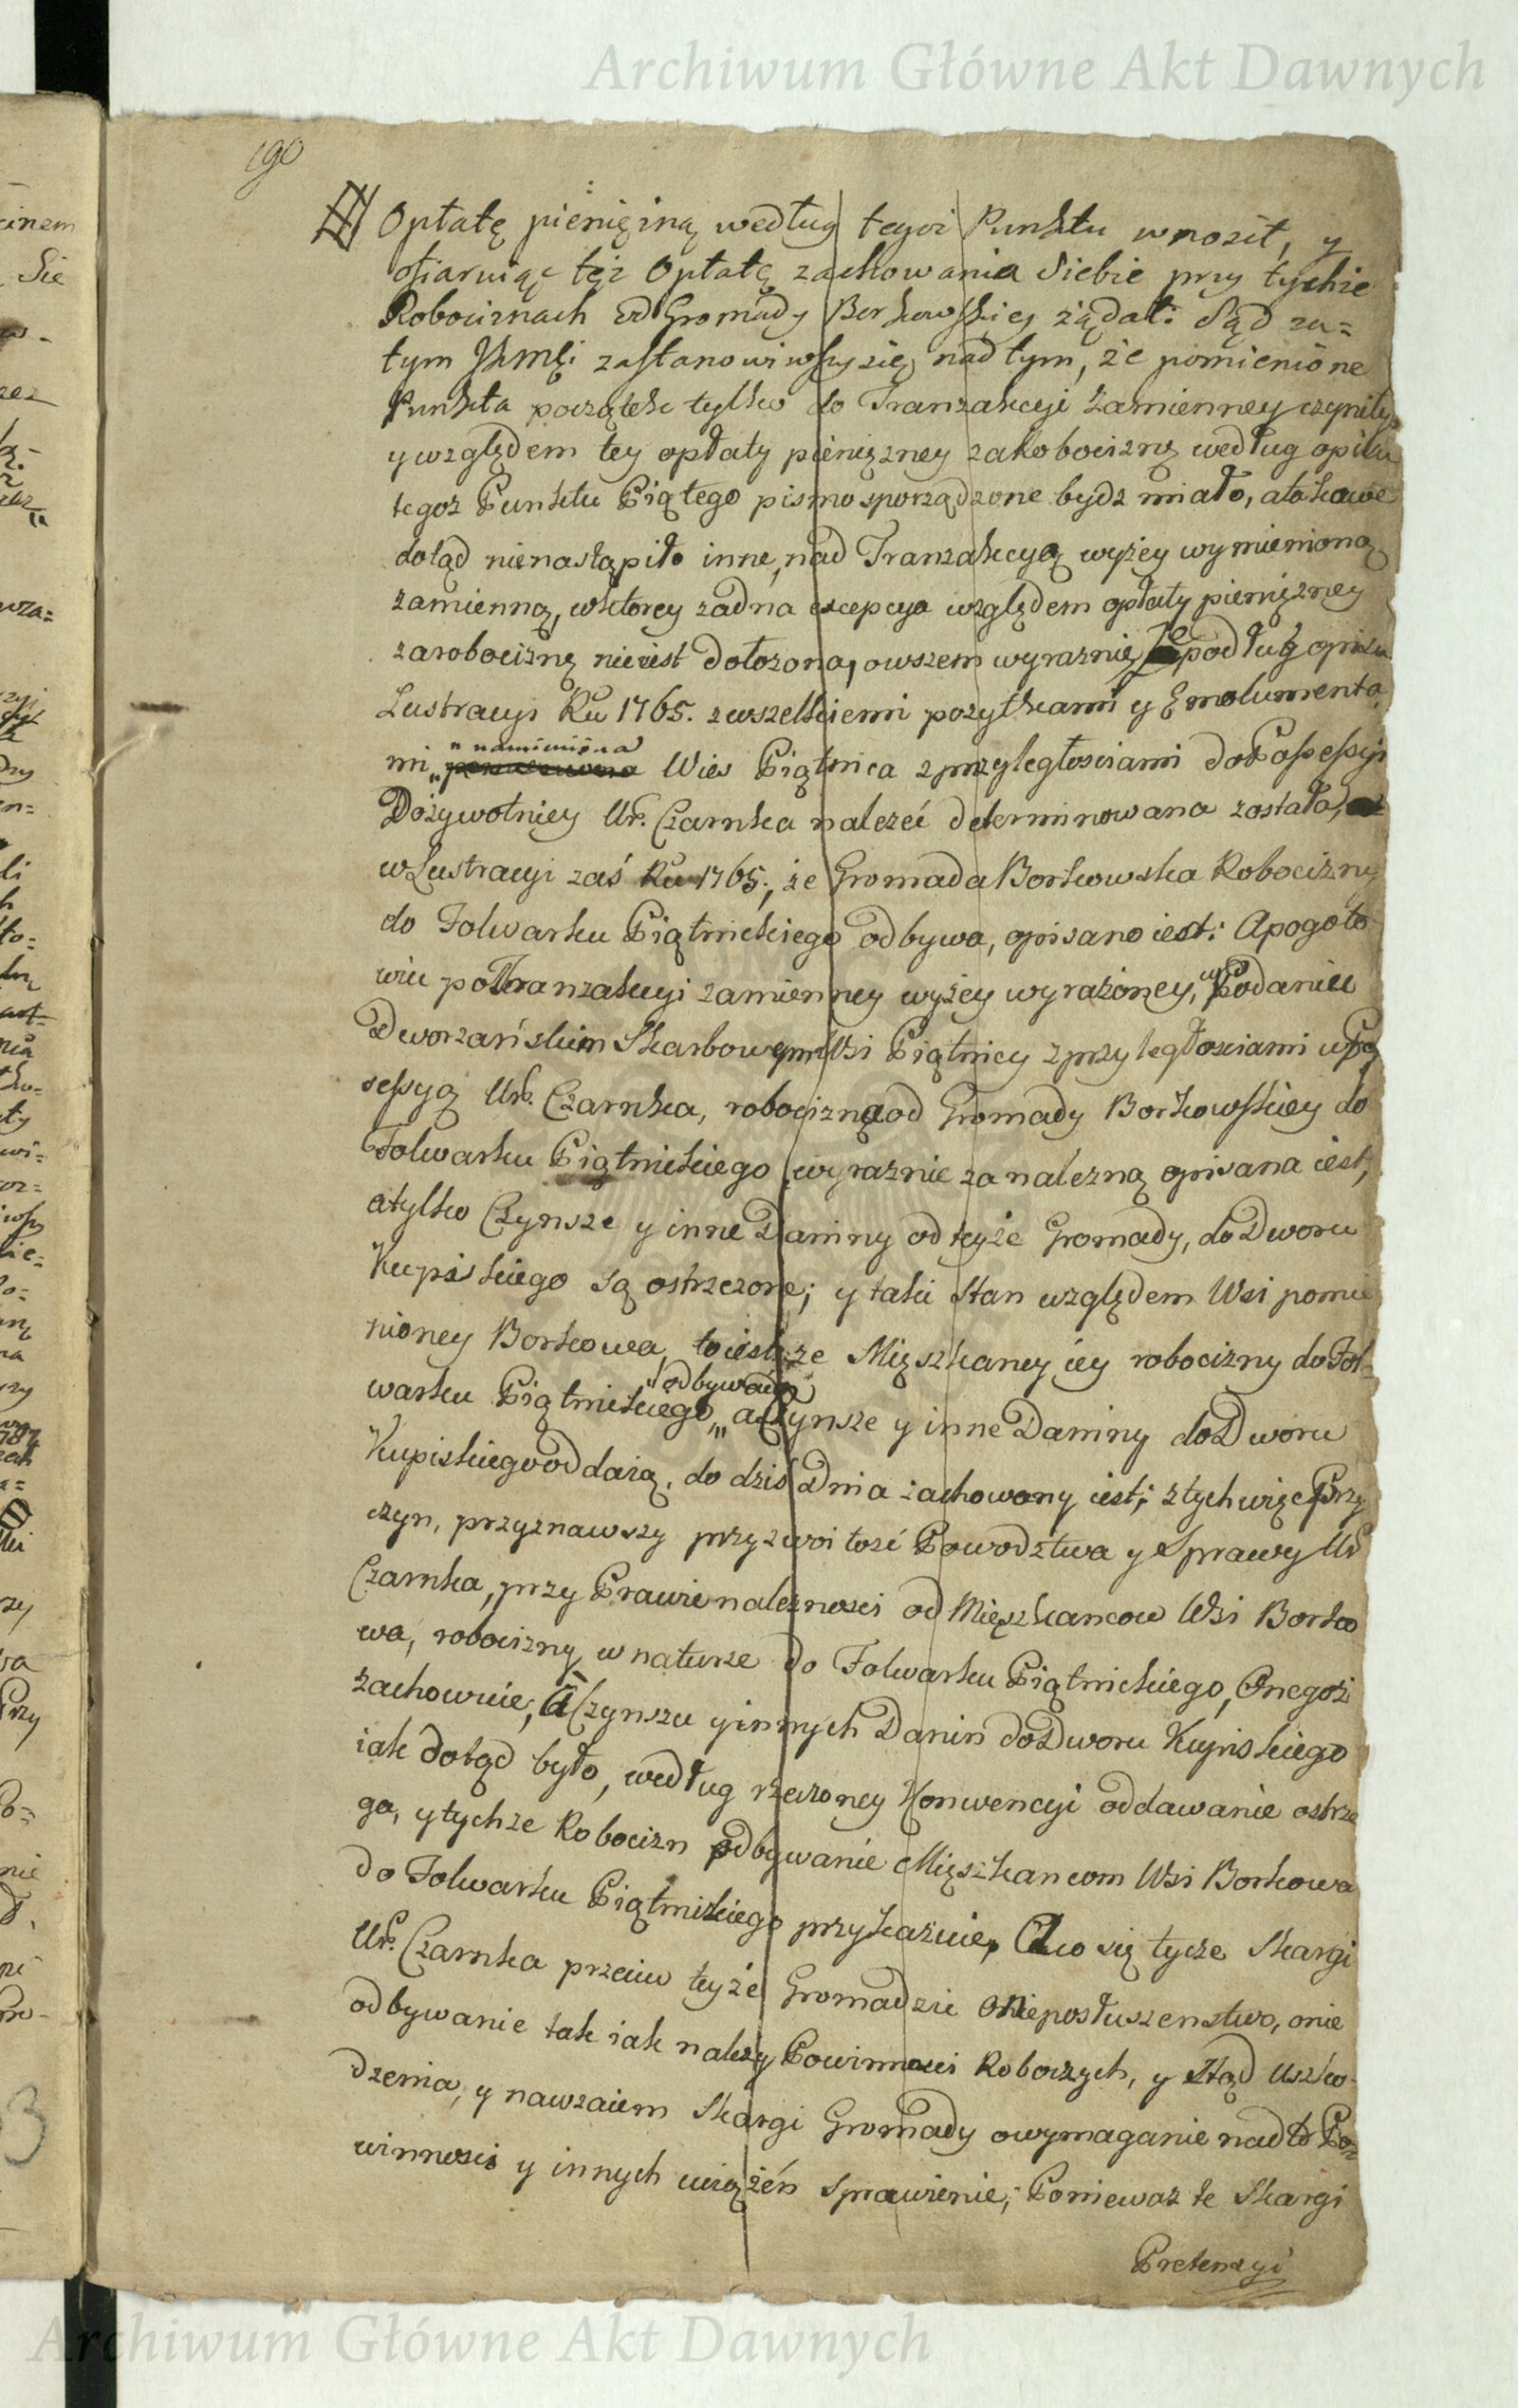 Archiwum Główne Akt Dawnych
190
Opłatę pieniężną według tegoż Punktu wnosił, y
ofiaruiąc też Opłatę zachowania siebie przy tychże
Robociznach od Gromady Borkowskiey żądał: Sąd za=
tym JKMCi zastanowiwszy się nad tym, że pomienione
Punkta początek tylko do Tranzakcyi Zamienney czyniły,
y względem tey opłaty pieniężney za Robociznę według opisu
tegoż Punktu Piątego pismo sporządzone bydz miało, a takowe
dotąd nienastąpiło inne, nad Tranzakcyą wyżey wymienioną
zamienną, w ktorey żadna excepcya względem opłaty pieniężney
za robociznę nie iest dołożona, owszem wyraznie że podług opisu
Lustracyi Ru 1765. z wszelkiemi pożytkami y Emolumenta
mi „namieniona Wies Piątnica z przyległościami do Possessyi
Dożywotniey Ur. Czarnka należeć determinowana została,
w Lustracyi zaś Ru 1765., że Gromada Borkowska Robocizny
do Folwarku Piątnickiego odbywa, opisano iest: A pogoto
wiu po Tranzakcyi zamienney wyżey wyrażoney, w Podaniu
Dworzańskim Skarbowym Wsi Piątnicy z przyległościami w Po
sessyą Ur. Czarnka, robocizna od Gromady Borkowskiey do
Folwarku Piątnickiego wyraznie za należną opisana iest,
a tylko Czynsze y inne Daniny od teyże Gromady, do Dworu
Kupiskiego są ostrzeżone; y taki Stan względem Wsi pomie
nioney Borkowa, to iest, że Mięszkancy iey robocizny do Fol=
warku Piątnickiego „odbywaią „ a Czynsze y inne Daniny do Dworu
Kupiskiego oddaią, do dziś Dnia zachowany iest; z tych więc Przy
czyn, przyznawszy przyzwoitość Powodztwa y Sprawy Ur
Czarnka, przy Prawie należności od Mięszkancow Wsi Borko
wa, robocizny w naturze do Folwarku Piątnickiego, Onegoż
zachowuie, A Czynszu y innych Danin do Dworu Kupiskiego
iak dotąd było, według rzeczoney Konwencyi oddawanie ostrze
ga, y tychże Robocizn odbywanie Mięszkancom Wsi Borkowa
do Folwarku Piątnickiego przykazuie, Co się tycze Skargi
Ur. Czarnka przeciw teyże Gromadzie o Nieposłuszenstwo, o nie
odbywanie tak iak należy Powinności Roboczych, y ztąd uszko
dzenia, y nawzaiem Skargi Gromady o wymaganie nadto Po=
winności y innych uciążeń sprawienie; Ponieważ te Skargi
Pretensyi
Archiwum Główne Akt Dawnych